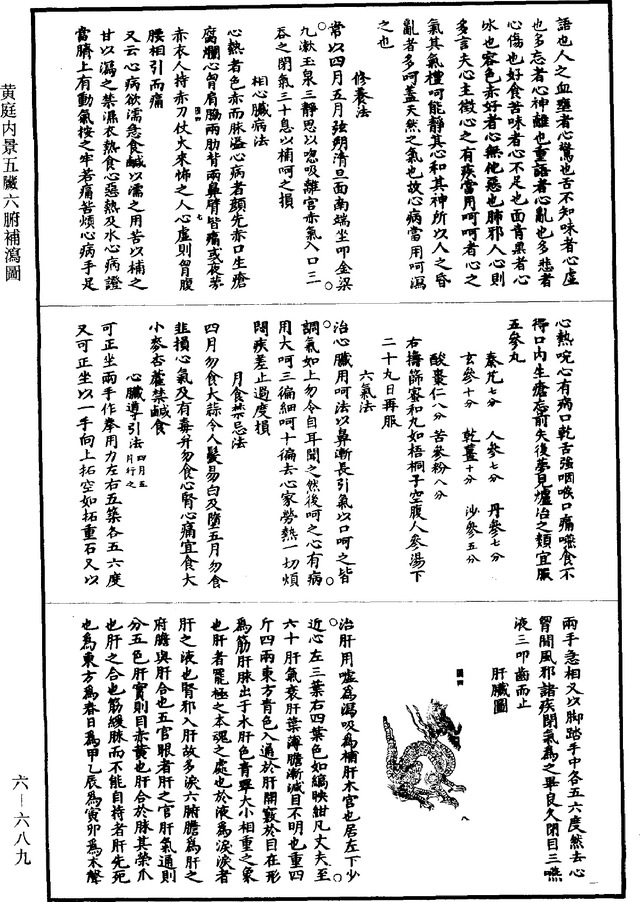 語也人之血壅者心驚也舌不知味者心虛
也多忘者心神離也重語者心亂也多悲者
心傷也好食苦味者心不足也面青黑者心
冰也容色赤好者心無他惡也肺邪入心則
多言夫心主徵心之有疾當用呵呵者心之
氣其氣禮呵能靜其心和其神所以人之昏
亂者多呵蓋天然之氣也故心病當用呵瀉
之也
修養法
常以四月五月弦朔清旦面南端坐叩金梁
九漱玉泉三靜思以吻吸離宮赤氣入口三
吞之閉氣三十息以補呵之損
相心臟病法
心熱者色赤而脉溢心病者顏先赤口生瘡
腐爛心胷肩脇兩肋背兩鼻臂皆痛或夜夢
赤衣人持赤刀仗火來怖之人心虛則胷腹
腰相引而痛
又云心病欲濡急食鹹以濡之用苦以補之
甘以瀉之禁濕衣熱食心惡熱及水心病證
當臍上有動氣按之牢若痛苦煩心病手足
心熱啘心有病口乾舌強咽喉口痛嚥食不
得口內生瘡忘前失後夢見爐冶之類宜服
五參丸
秦艽七分 人參七分 丹參七分
玄參十分 乾薑十分 沙參五分
酸棗仁八分 苦參粉八分
右擣篩蜜和丸如梧桐子空腹人參湯下
二十九日再服
六氣法
治心臟用呵法以鼻漸長引氣以口呵之皆
調氣如上勿令自耳聞之然後呵之心有病
用大呵三徧細呵十徧去心家勞熱一切煩
悶疾差止過度損
月食禁忌法
四月勿食大蒜令人髮易白及墮五月勿食
韭損心氣及有毒并勿食心腎心痛宜食大
小麥杏藿禁鹹食
心臟導引法四月五月行之
可正坐兩手作拳用力左右五築各五六度
又可正坐以一手向上拓空如拓重石又以
兩手急相叉以腳踏手中各五六度然去心
胷間風邪諸疾閉氣為之畢良久閉目三嚥
液三叩齒而止
肝臟圖
治肝用噓為瀉吸為補肝木宮也居左下少
近心左三葉右四葉色如縞映紺凡丈夫至
六十肝氣衰肝葉薄膽漸減目不明也重四
斤四兩東方青色入通於肝開竅於目在形
為筋肝脉出于水肝色青翠大小相重之象
也肝者罷極之本魂之處也於液為淚淚者
肝之液也腎邪入肝故多淚六腑膽為肝之
府膽與肝合也五官眼者肝之官肝氣通則
分五色肝實則目赤黃也肝合於脉其榮爪
也肝之合也筋緩脉而不能自持者肝先死
也為東方為春日為甲乙辰為寅卯為木聲
黃庭內景五臟六腑補瀉圖
六－六八九